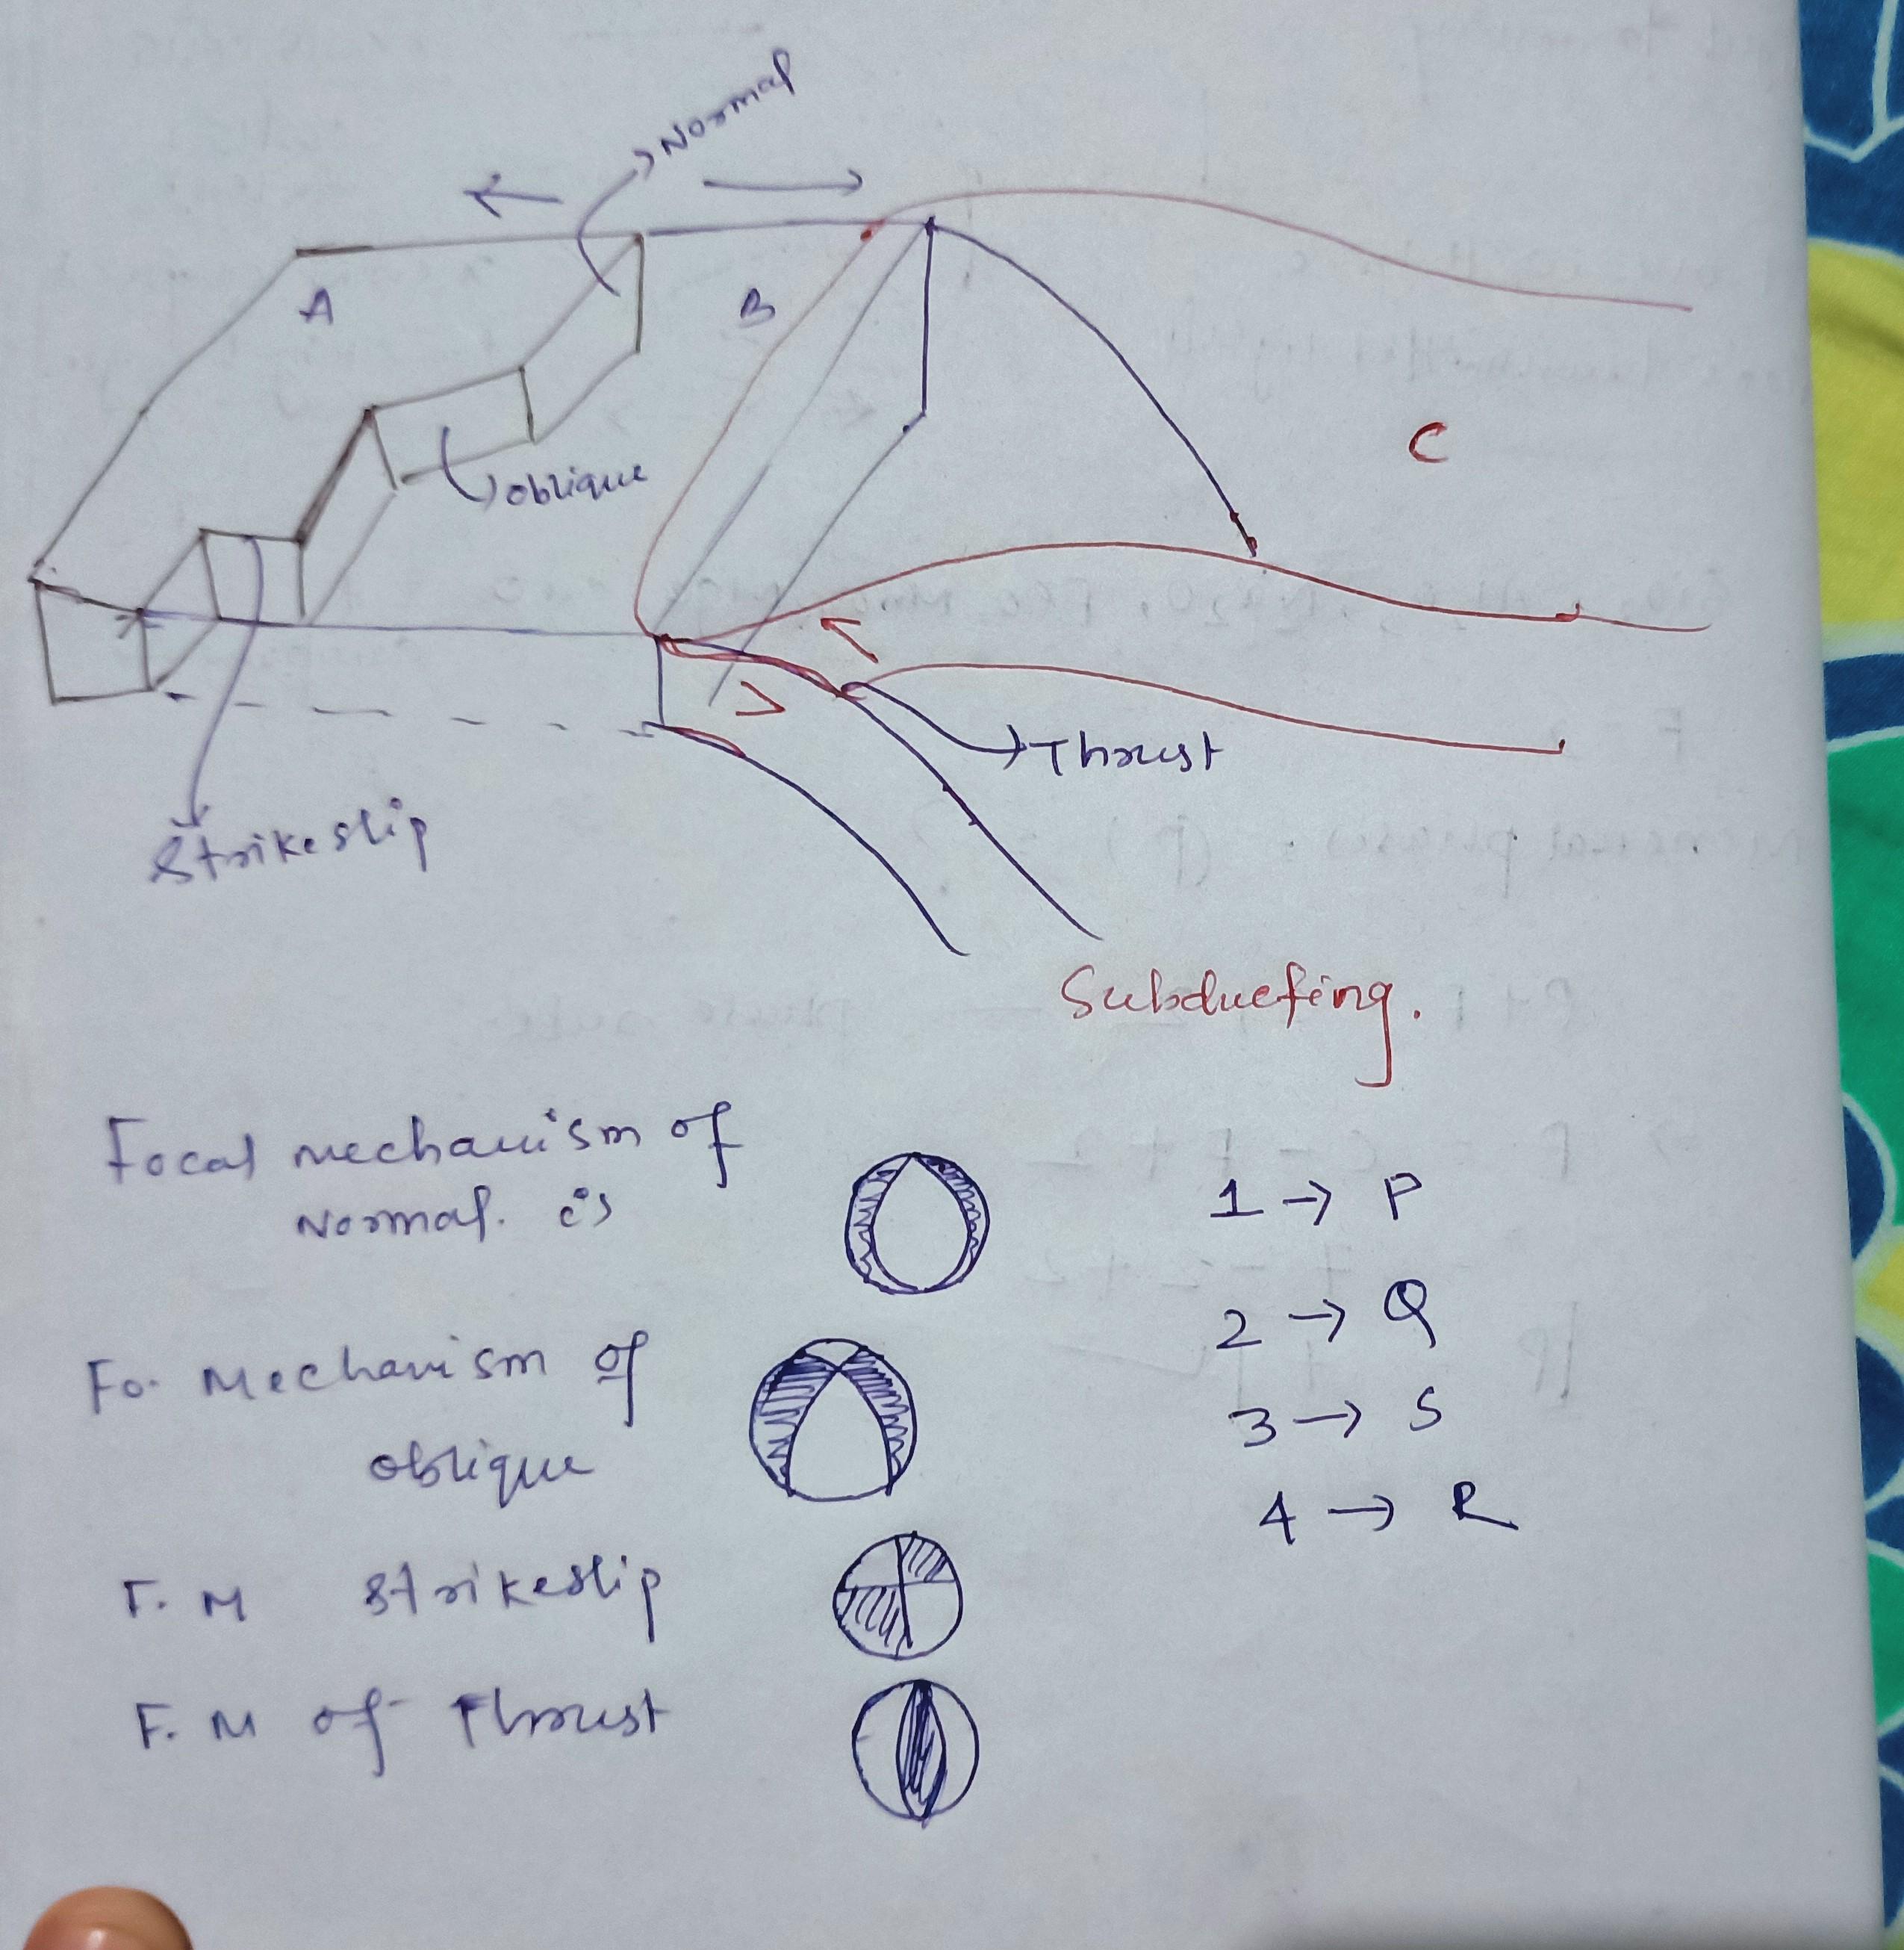 Normal
A
B
C
oblique
Thrust
Strikeslip
Subducting.
Focal mechanism of
Normal. is
1 → P
2 → Q
Fo. Mechanism of
oblique
3 → S
4 → R
F. M strikeslip
F. M of Thrust